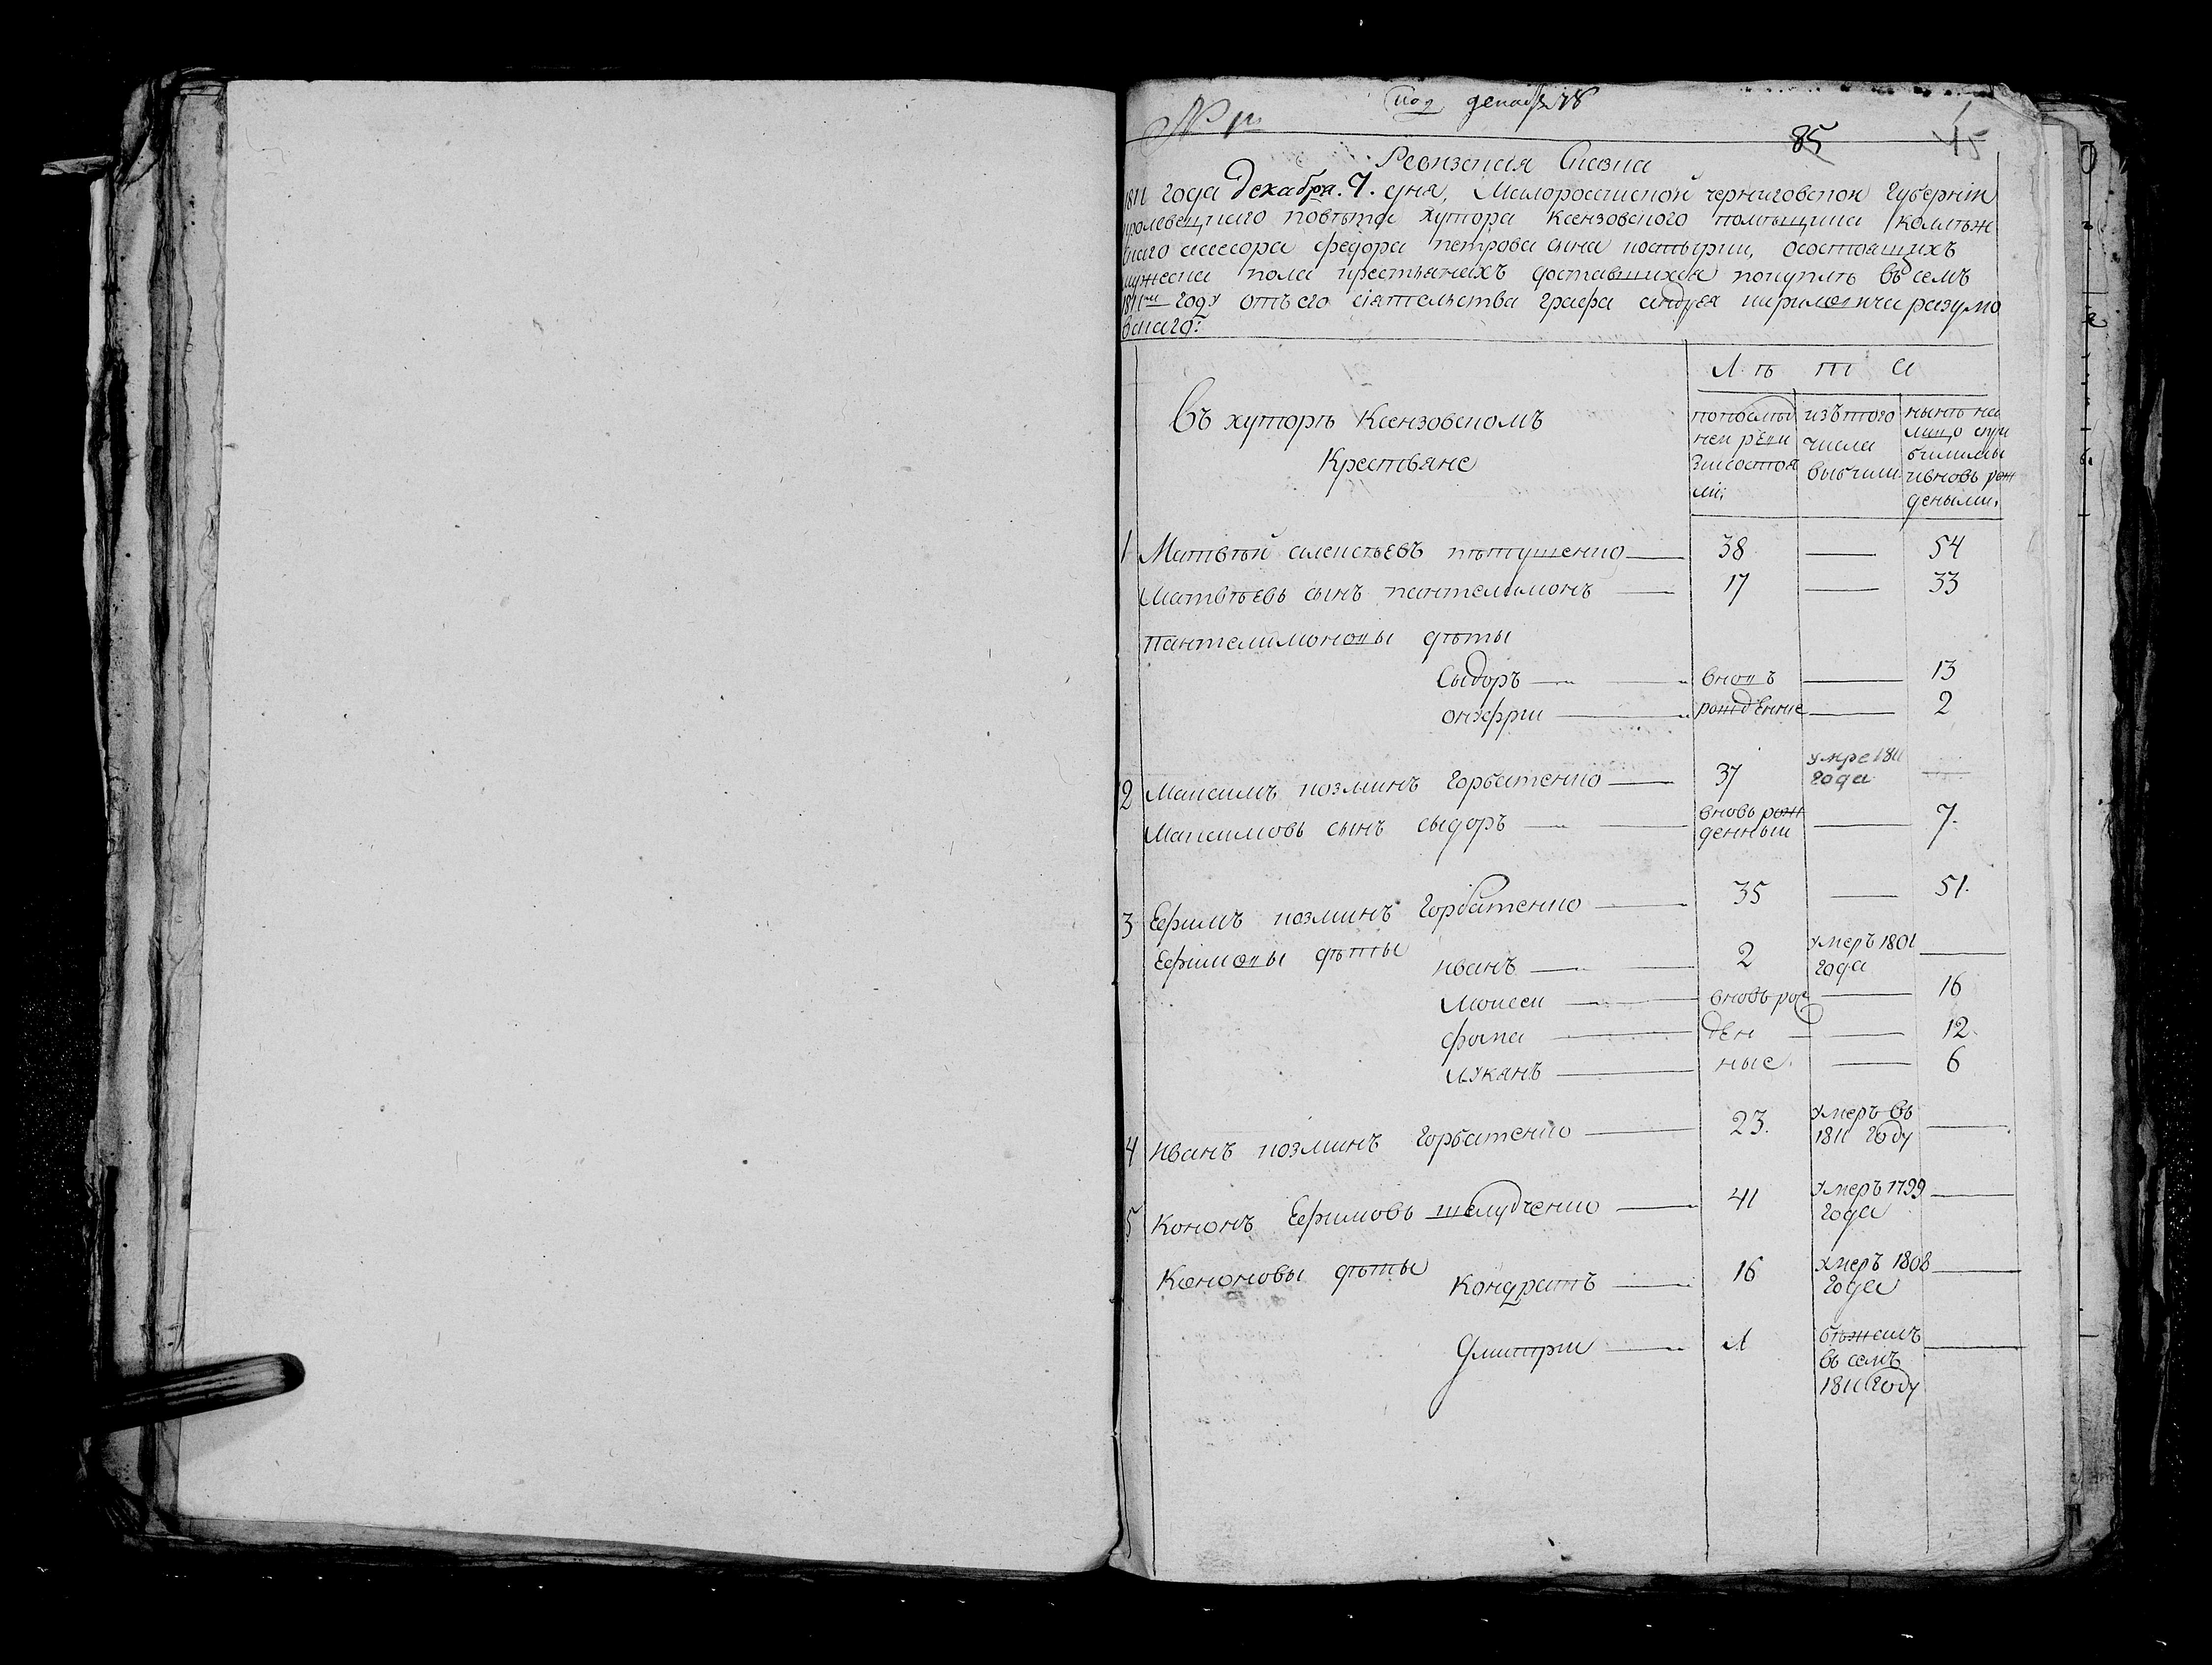 85 45
Ревизская Сказка
1811 года декабря. 7. дня, Малороссиской черниговской Губернiи
кролевецкаго повѣта хутора Ксензовского помѣщика колѣж
скаго асесора федора петрова сына костырки, осостоящихъ
мужеска пола крестьянахъ доставшихся покупкѣ въ семъ
1811мъ году отъ его сiятельства графа андрея кириловича разумо
вскаго:
Л ѣ т а
Въ хуторѣ Ксензовскомъ
Крестьяне
попослѣд
ней реви
зiи состоя
ли;
изътого
числа
выбыли
нынѣ на
лицо при
былыми
ивновь рож
деными.
1 Матвѣй алексѣевъ пѣтушенко 38 54
Матвѣевъ сынъ пантелимонъ 17 33
Пантелимоновы дѣты
Сыдоръ вновъ 13
онуфрiи рожденние 2
2 Максимъ козминъ Горбатенко 37 умре 1811
года
Максимовъ сынъ сыдоръ вновь рож
денныи 7.
3 Ефимъ козминъ Горбатенко 35 51.
Ефимовы дѣты иванъ 2 умеръ 1801
года
Моисеи вновь рож 16
фома ден 12.
лукянъ ные. 6
4 иванъ козминъ Горбатенко 23. умеръ въ
1811 году
5 Кононъ Ефимовъ шелудченко 41 умеръ 1799
года
Кононовы дѣты Кондратъ 16 умеръ 1808
года
Дмитрiи бѣжалъ
въ семъ
1811 году